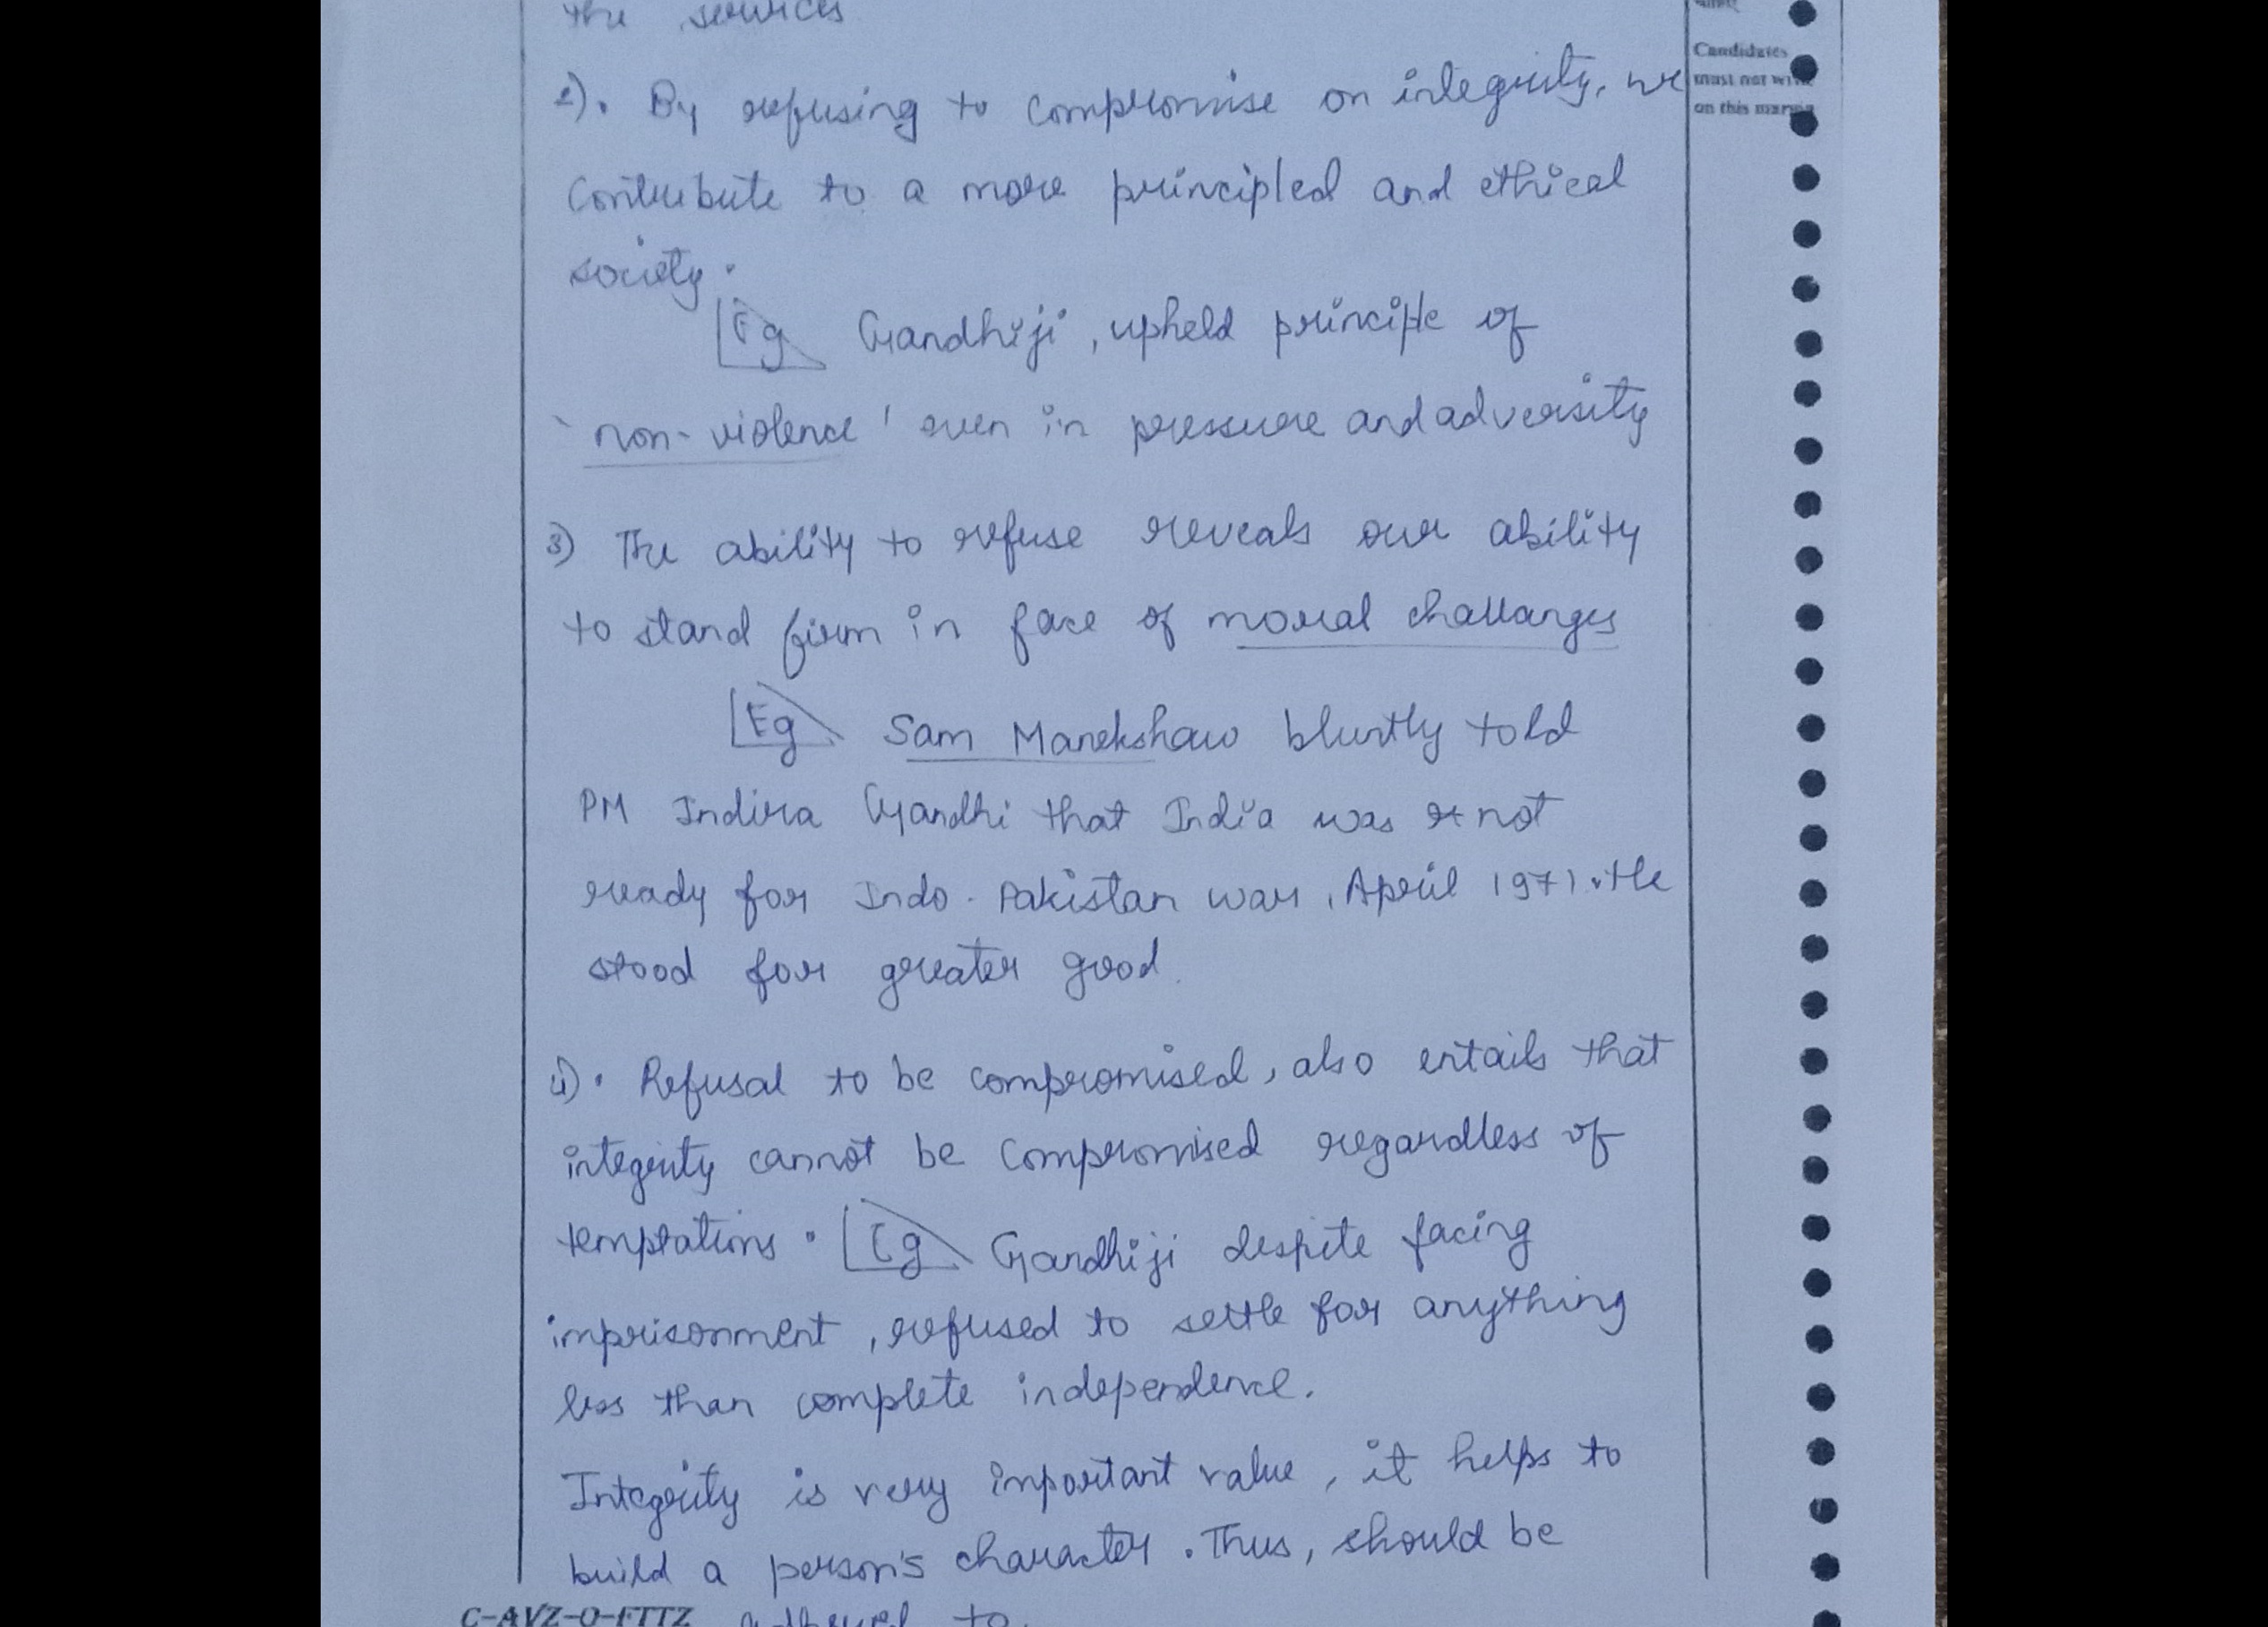 the services
Candidates
must not write
on this margin
2). By refusing to compromise on integrity, we
contribute to a more principled and ethical
society.
Eg Gandhiji, upheld principle of
'non-violence' even in pressure and adversity
3) The ability to refuse reveals our ability
to stand firm in face of moral challanges
Eg Sam Manekshaw bluntly told
PM Indira Gandhi that India was not
ready for Indo-Pakistan war, April 1971. He
stood for greater good.
4). Refusal to be compromised, also entails that
integrity cannot be compromised regardless of
temptations. Eg Gandhiji despite facing
imprisonment, refused to settle for anything
less than complete independence.
Integrity is very important value, it helps to
build a person's character. Thus, should be
adhered to.
C-AVZ-O-FTTZ